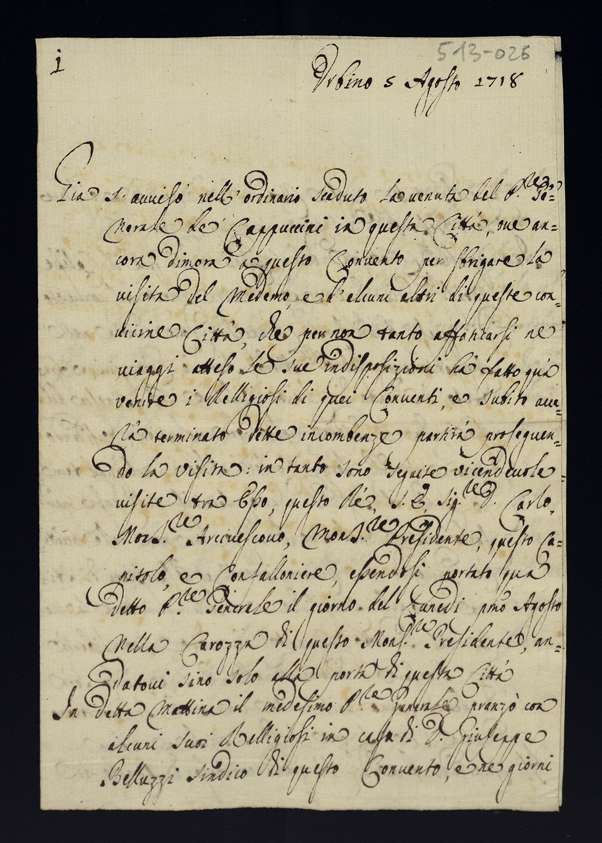 1
513-026
Urbino 5 Agosto 1718
Già s'avvisò nell'ordinario scaduto la venuta del P.re Ge-
nerale de Cappuccini in questa Città, ove an-
cora dimora in questo Convento per sbrigare la
visita del medemo, e d'alcuni altri di queste con-
vicine Città, che per non tanto affatticarsi ne
viaggi atteso le sue indisposizioni hà fatto quà
venire i Relligiosi di quei Conventi, e subito ave-
rà terminato dette incombenze partirà proseguen-
do la visita: in tanto sono seguite vicendevole
visite tra Esso, questo Rè, S. E. Sig.re D. Carlo,
Mons.re Arcivescovo, Mons.re Presidente, questo Ca-
pitolo, e Confalloniere, essendosi portato qua
detto P.re Generale il giorno del Lunedì p.mo Agosto
nella Carozza di questo Mons.re Presidente, an-
datovi sino solo alla porta di questa Città
In detta mattina il medesimo P.re Generale pranzò con
alcuni suoi Relligiosi in casa di D. Giuseppe
Belluzzi sindico di questo Convento, e ne giorni